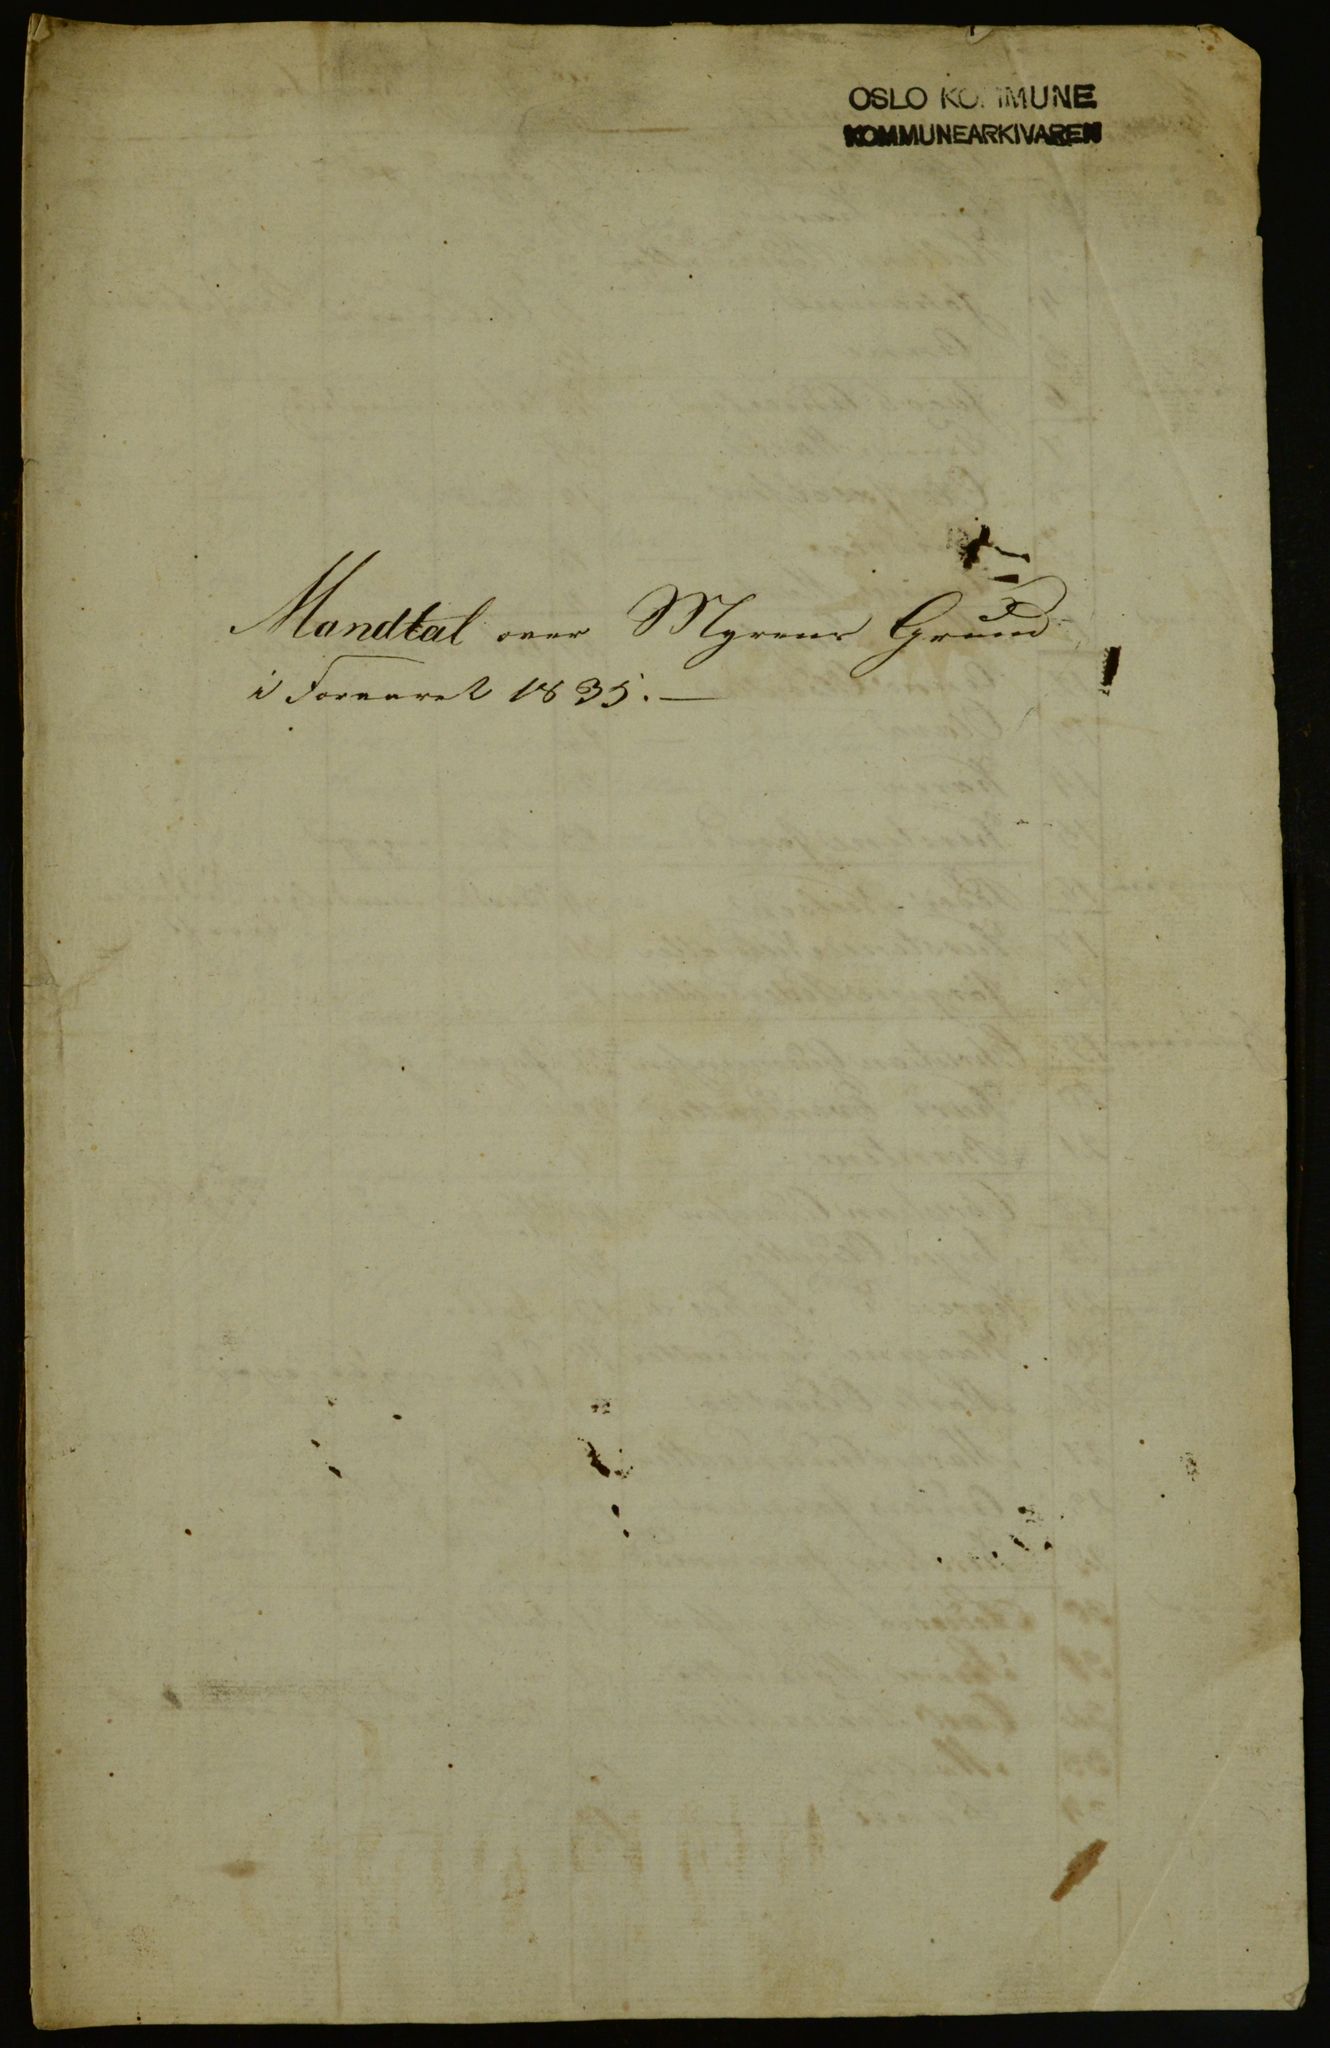 OSLO KOMMUNE
KOMMUNEARKIVAREN
Mandtal over Myrens Grund
i Foraaret 1835.—